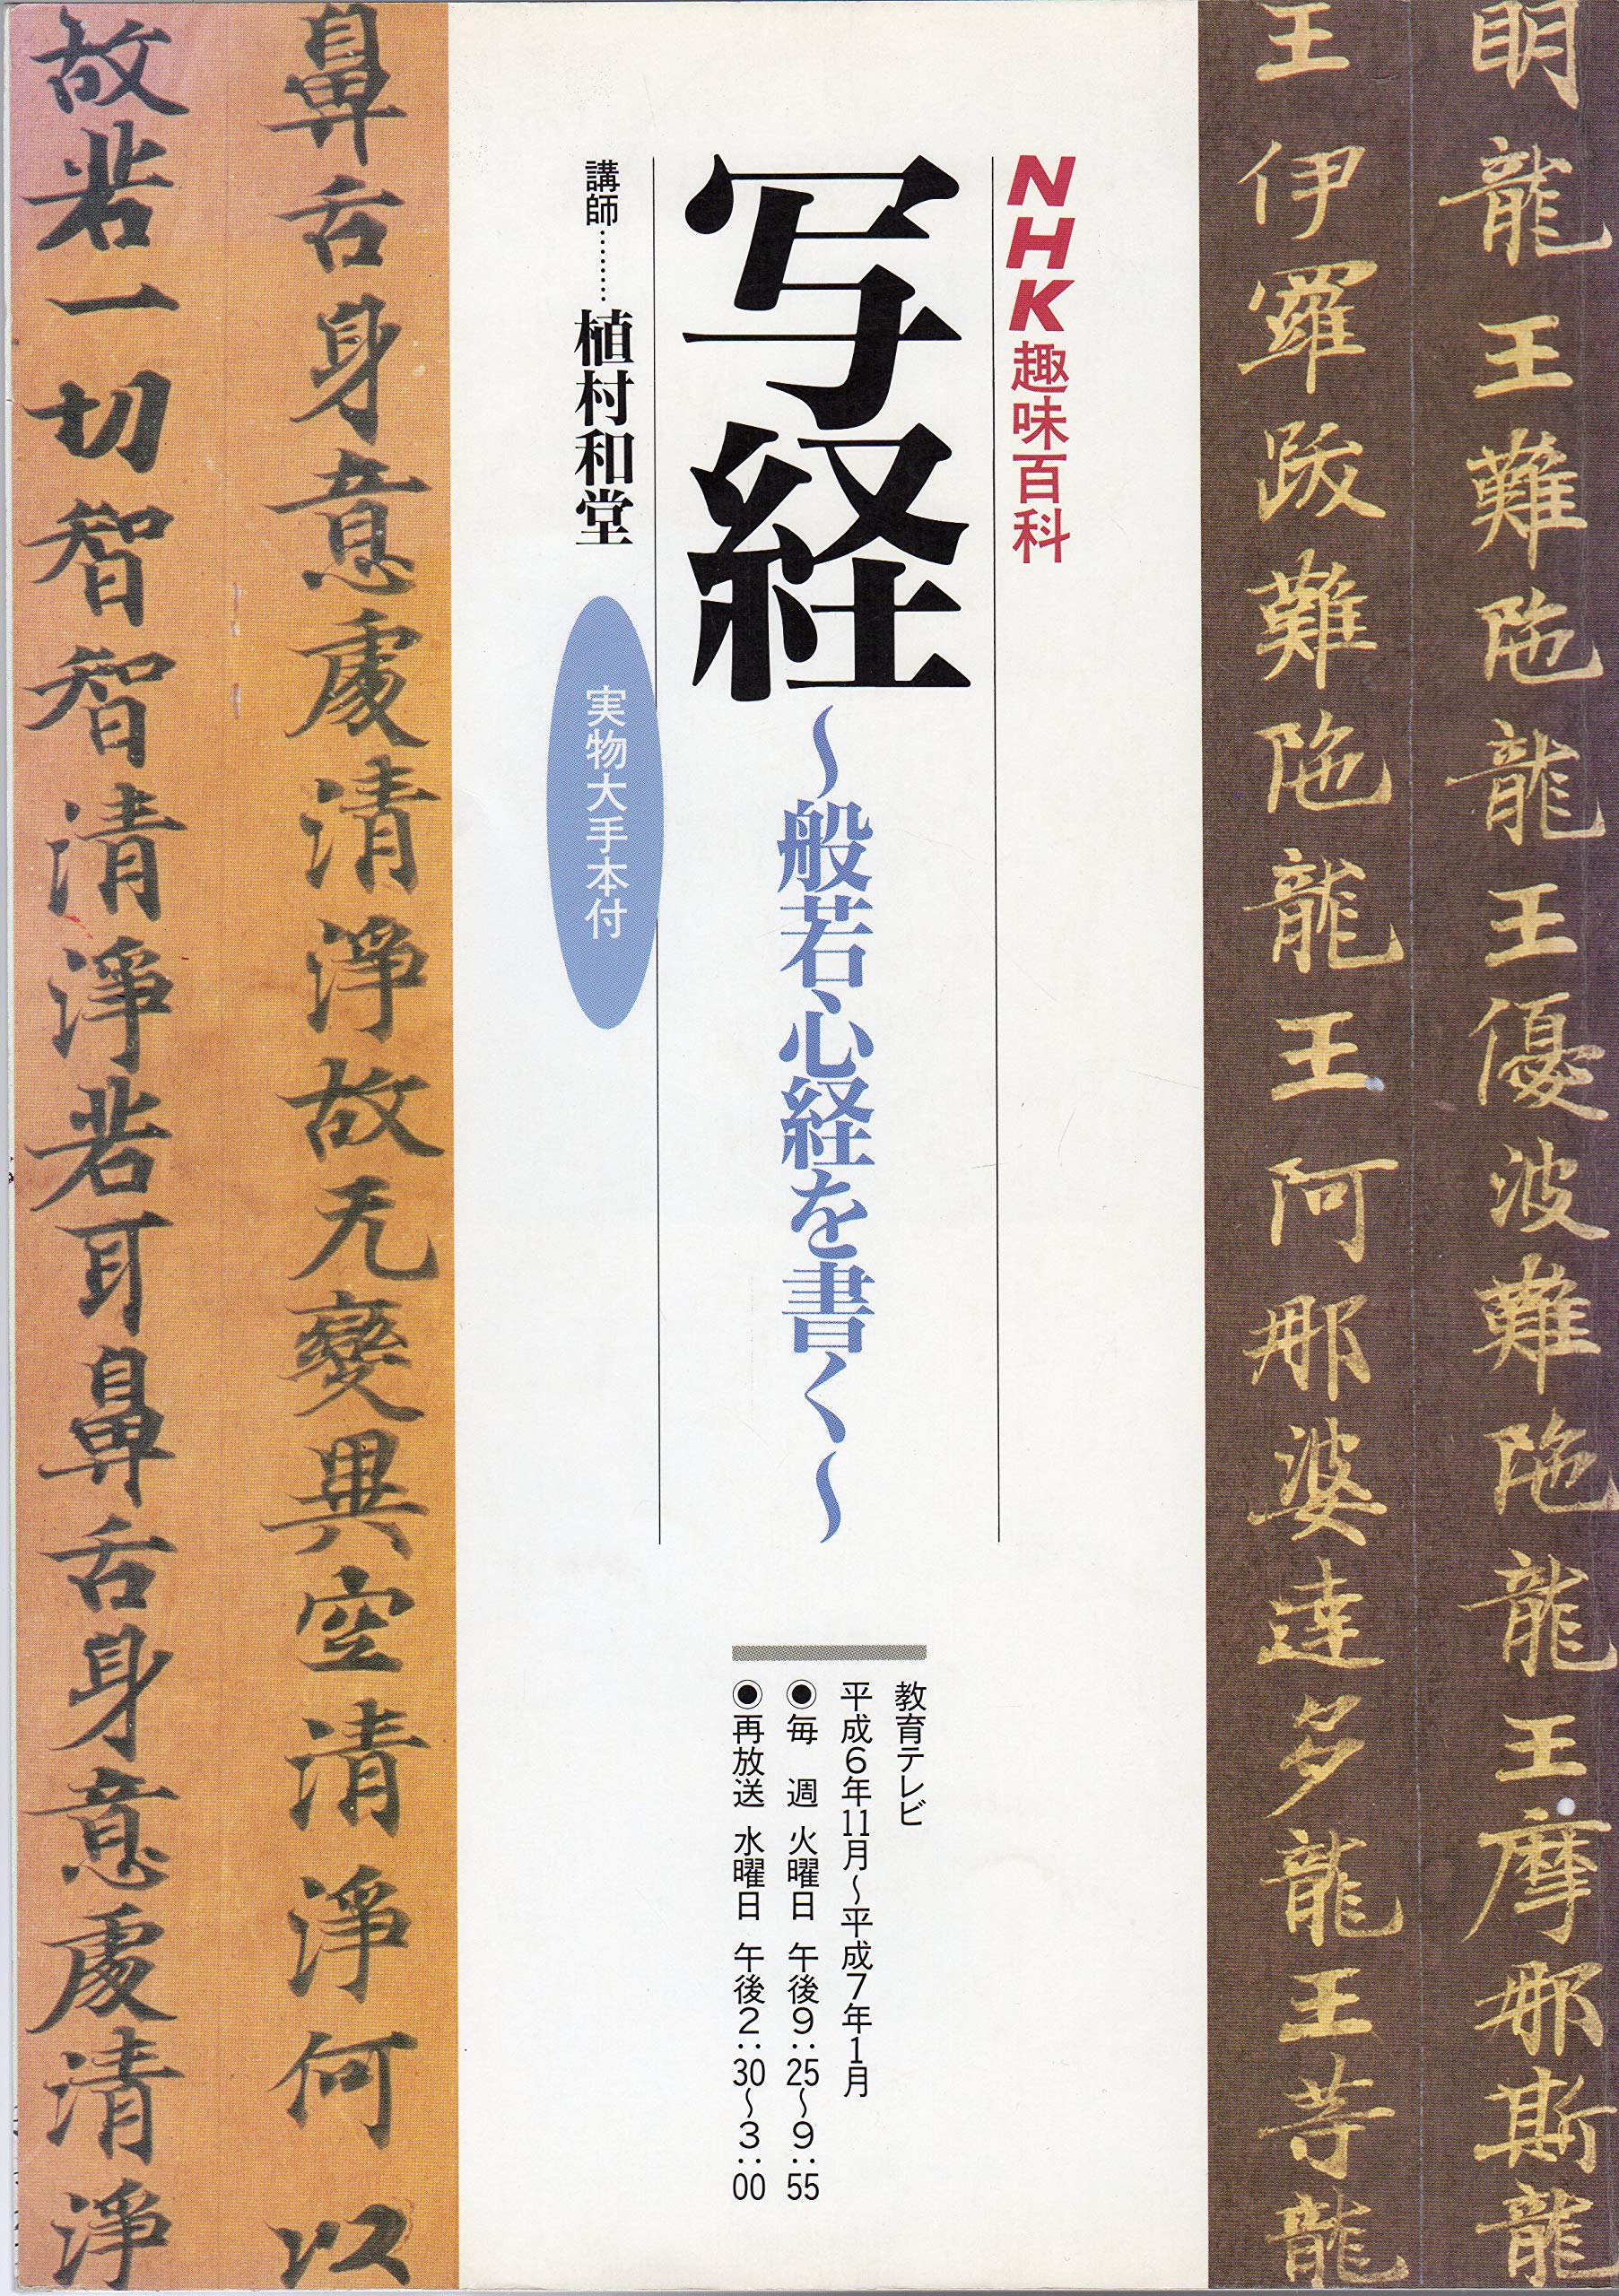 明龍王難陁龍王優波難陁龍王摩那斯龍
王伊羅跋難陁龍王阿那婆達多龍王等龍
NHK趣味百科
写経
〜般若心経を書く〜
講師………植村和堂
実物大手本付
教育テレビ
平成6年11月〜平成7年1月
◉毎 週 火曜日 午後9:25〜9:55
◉再放送 水曜日 午後2:30〜3:00
鼻舌身意處清淨故无變異空清淨何以
故若一切智智清淨若耳鼻舌身意處清淨